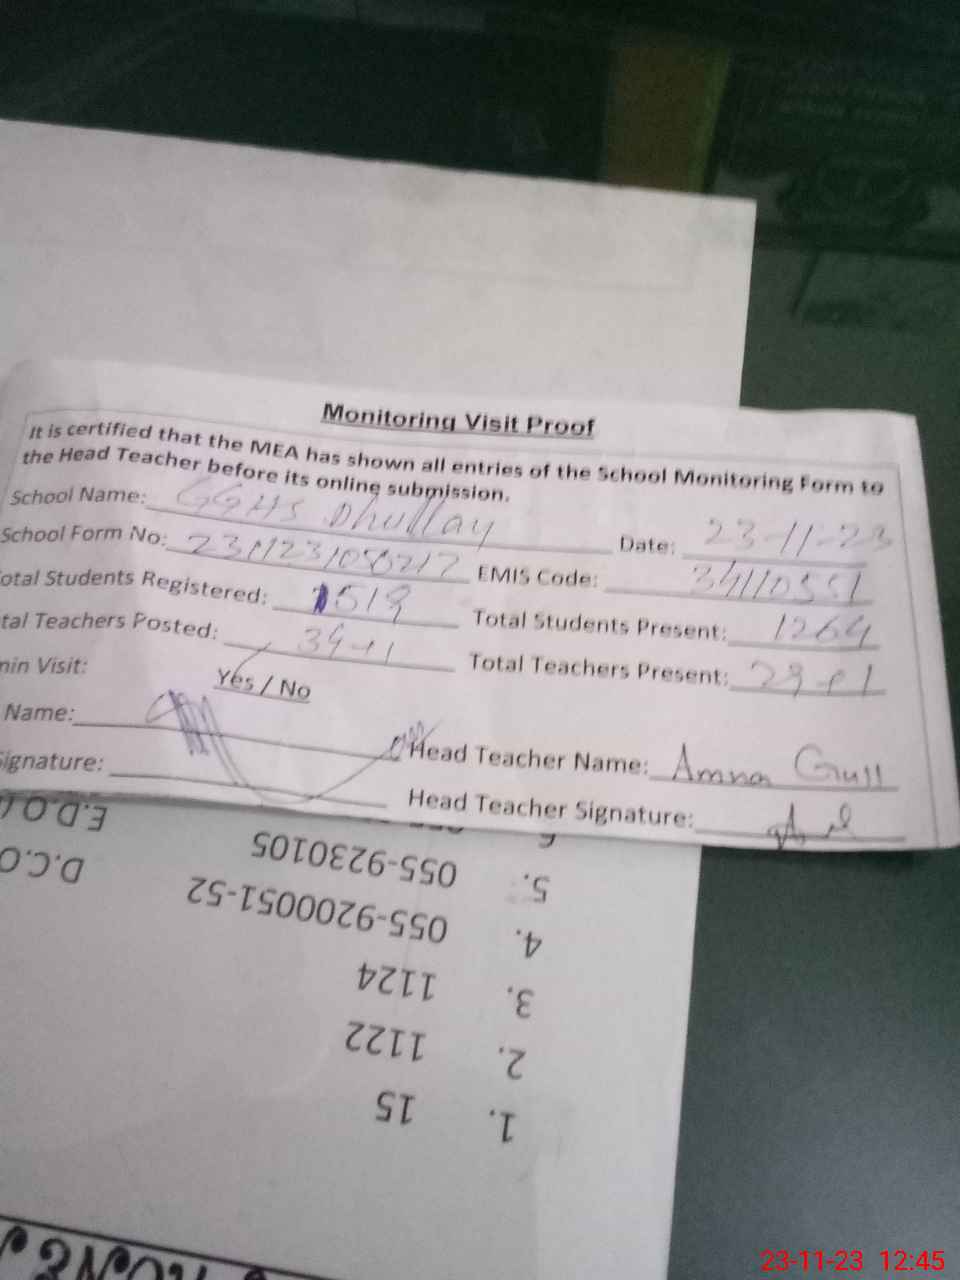 Monitoring Visit Proof
It is certified that the MEA has shown all entries of the School Monitoring Form to
the Head Teacher before its online submission.
School Name: GGHS Dhullay
Date: 23-11-23
School Form No:
EMIS Code: 34110551
otal Students Registered: 1519
Total Students Present: 1264
tal Teachers Posted: 34+1
Total Teachers Present: 29+1
min Visit: Yes / No
Name:
Head Teacher Name: Amna Gull
Signature:
Head Teacher Signature:
1. 15
2. 1122
3. 1124
4. 055-9200051-52 D.C.O
5. 055-9230105 E.D.O
23-11-23 12:45